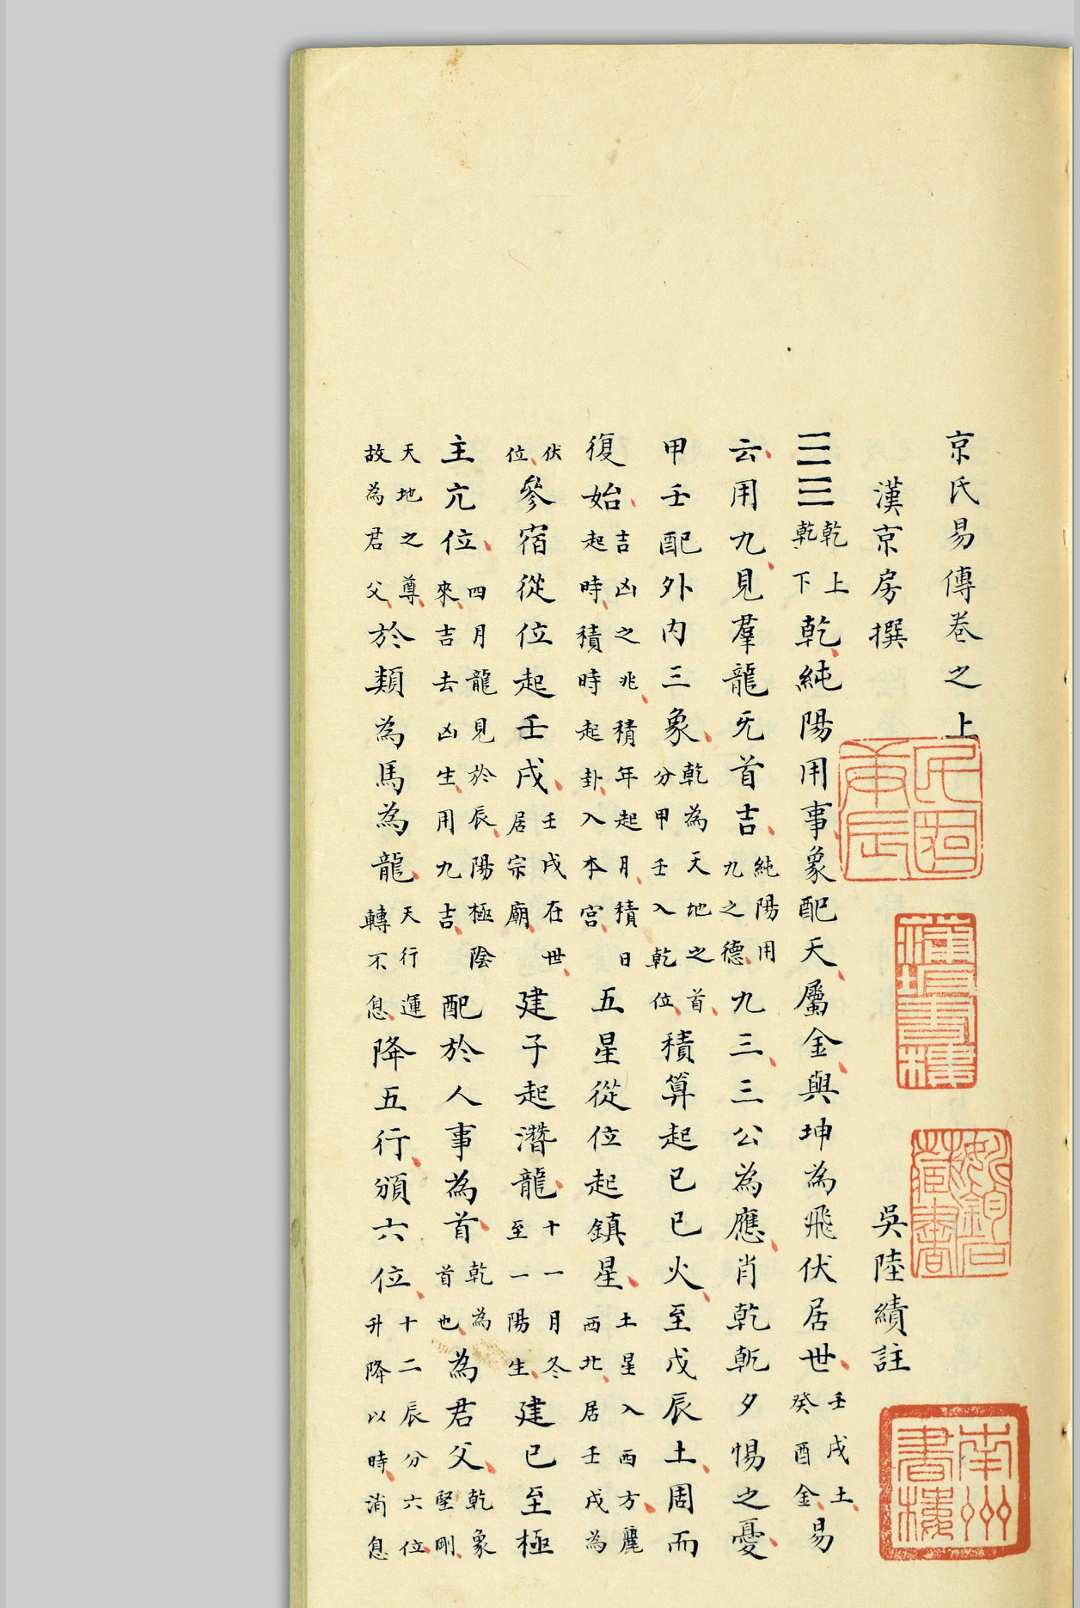 京氏易傳卷之上
漢京房撰　吳陸績註
䷀乾上乾下乾純陽用事象配天屬金與坤為飛伏居世壬戌土癸酉金易
云用九見羣龍旡首吉純陽用九之德九三三公為應肖乾乾夕惕之憂
甲壬配外內三象乾為天地之首分甲壬入乾位積算起已已火至戊辰土周而
復始吉凶之兆積年起月積日起時積時起卦入本宮五星從位起鎮星土星入西方麗西北居壬戌為
伏位參宿從位起壬戌壬戌在世居宗廟建子起潛龍十一月冬至一陽生建已至極
主亢位四月龍見於辰陽極陰來吉去凶生用九吉配於人事為首乾為首也為君父乾象堅剛
天地之尊故為君父於類為馬為龍天行運轉不息降五行頒六位十二辰分六位升降以時消息
民國庚辰
南州書樓